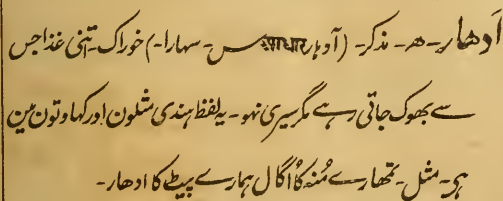 اَدھار۔ ھ۔ مذکر۔ (آدہار आधार س۔ سہارا۔) خوراک۔ اتنی غذا جس
سے بھوک جاتی رہے مگر سیری نہو۔ یہ لفظ ہندی مثلون اور کہاوتون مین
ہی۔ مثل۔ تمھارے مُنہ کا اُگال ہمارے پیٹ کا ادھار۔